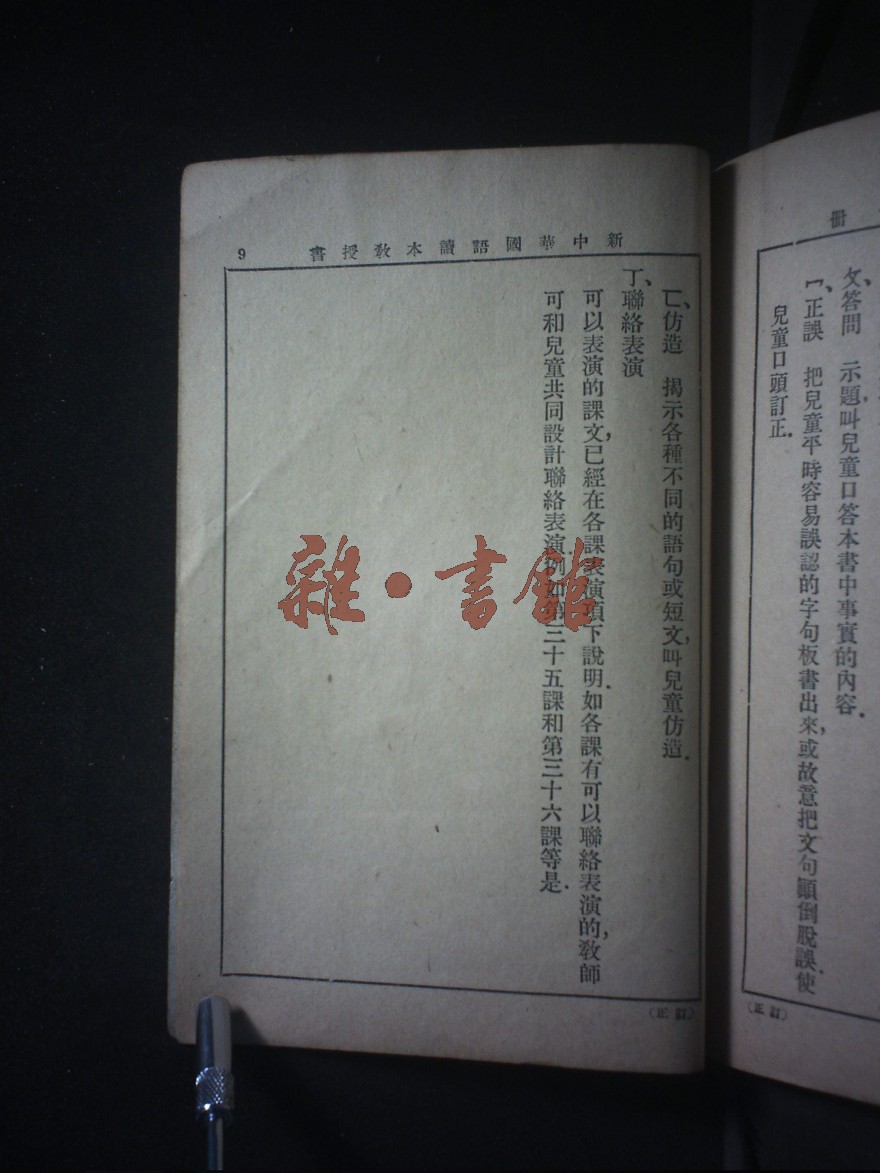 冊
ㄆ、答問　示題,叫兒童口答本書中事實的內容.
ㄇ、正誤　把兒童平時容易誤認的字句板書出來,或故意把文句顚倒脫誤,使
兒童口頭訂正.
(訂正)
新中華國語讀本教授書
9
ㄈ、仿造　揭示各種不同的語句或短文,叫兒童仿造.
丁、聯絡表演
可以表演的課文,已經在各課表演項下說明.如各課有可以聯絡表演的,教師
可和兒童共同設計聯絡表演.例如第三十五課和第三十六課等是.
(訂正)
雜·書館